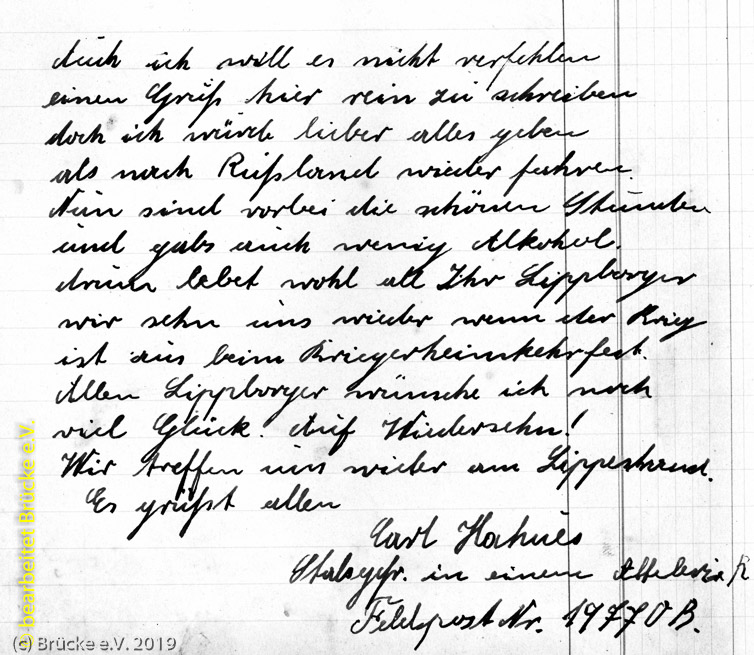 Auch ich will es nicht verfehlen
einen Gruß hier rein zu schreiben
doch ich würde lieber alles geben
als nach Rußland wieder fahren.
Nun sind vorbei die schönen Stunden
und gabs auch wenig Alkohol.
drum lebet wohl all Ihr Lippborger
wir sehn uns wieder wenn der Krieg
ist aus beim Kriegerheimkehrfest.
Allen Lippborger wünsche ich noch
viel Glück. Auf Wiedersehn!
Wir treffen uns wieder am Lippestrand.
Es grüßt allen
Carl
Stabsgefr. in einem
Feldpost Nr. 19770 B.
bearbeitet Brücke e.V.
(c) Brücke e.V. 2019